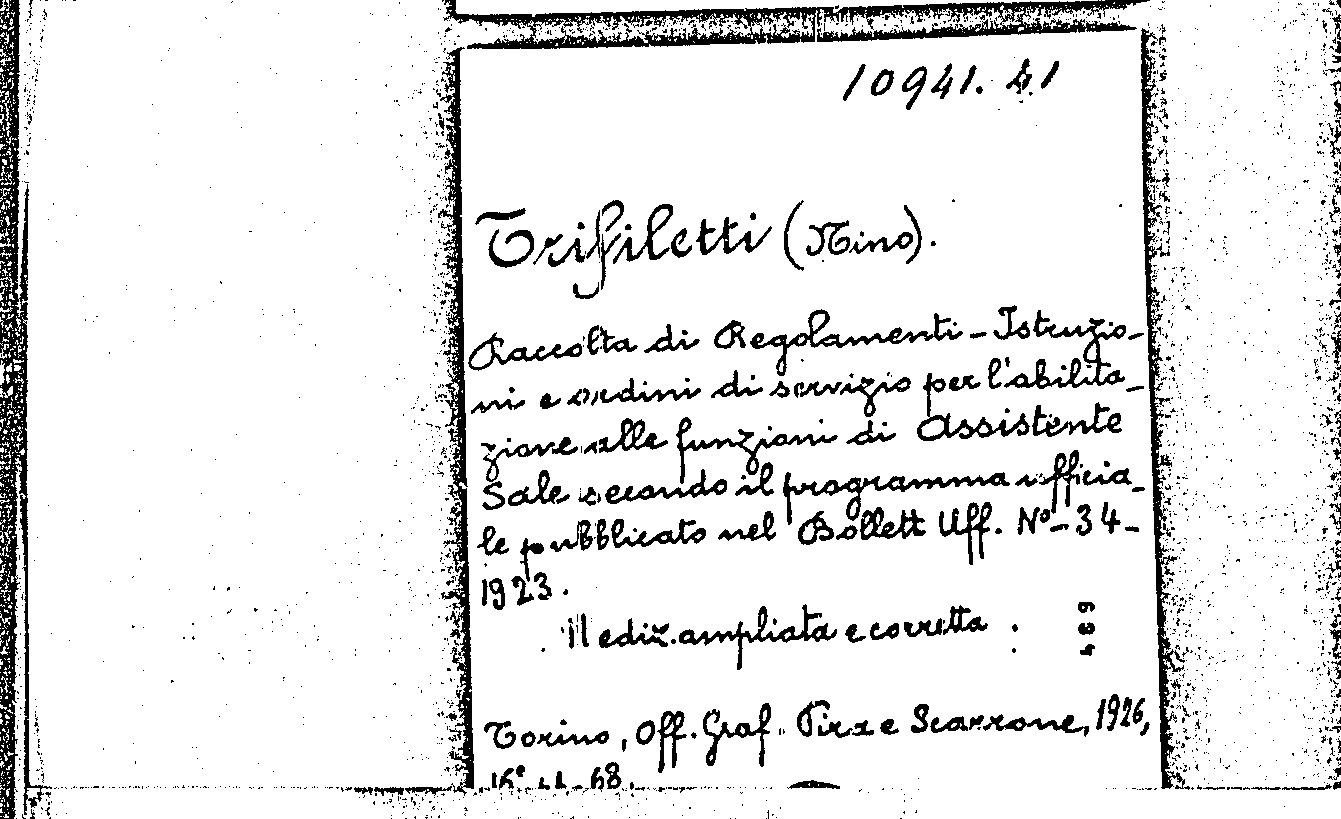 10941. 41
Trifiletti (Nino).
Raccolta di Regolamenti - Istruzio-
ni e ordini di servizio per l'abilita-
zione alle funzioni di Assistente
Sale secondo il programma ufficia-
le pubblicato nel Bollett Uff. Nº - 34 -
1923.
II ediz. ampliata e corretta.
Torino, Off. Graf. e Scarrone, 1926,
16º 68.